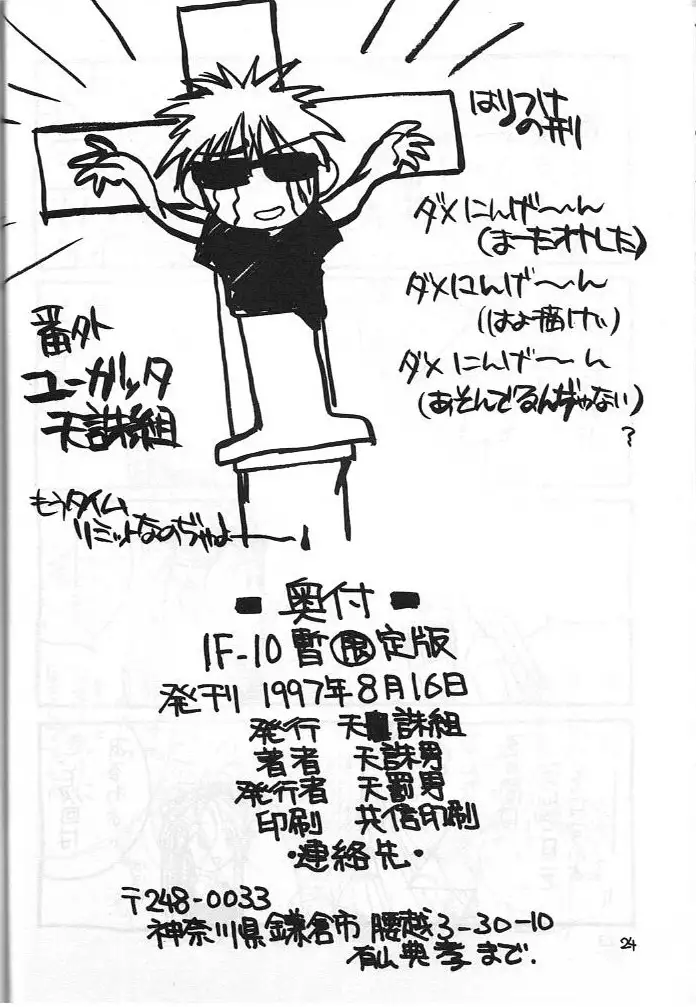 はりつけ
の刑
ダメにんげ〜〜ん
(まーたオトした)
ダメにんげ〜〜ん
(はよ描けい)
ダメにんげ〜〜ん
(あそんでるんぢゃない)
?
番外
ユーガッタ
天誅組
もうタイム
リミットなのぢゃよ——!
奥付
IF-10 暫限定版
発刊 1997年8月16日
発行 天誅組
著者 天誅男
発行者 天罰男
印刷 共信印刷
・連絡先・
〒248-0033
神奈川県鎌倉市 腰越3-30-10
典孝まで.
24